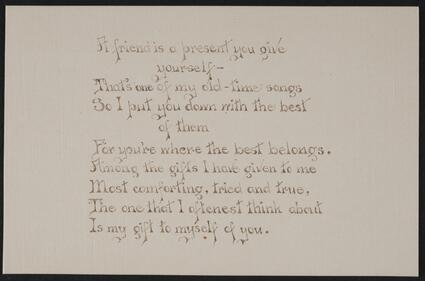 A friend is a present you give
yourself-
That's one of my old-time songs
So I put you down with the best
of them
For you're where the best belongs.
Among the gifts I have given to me
Most comforting, tried and true,
The one that I oftenest think about
Is my gift to myself of you.